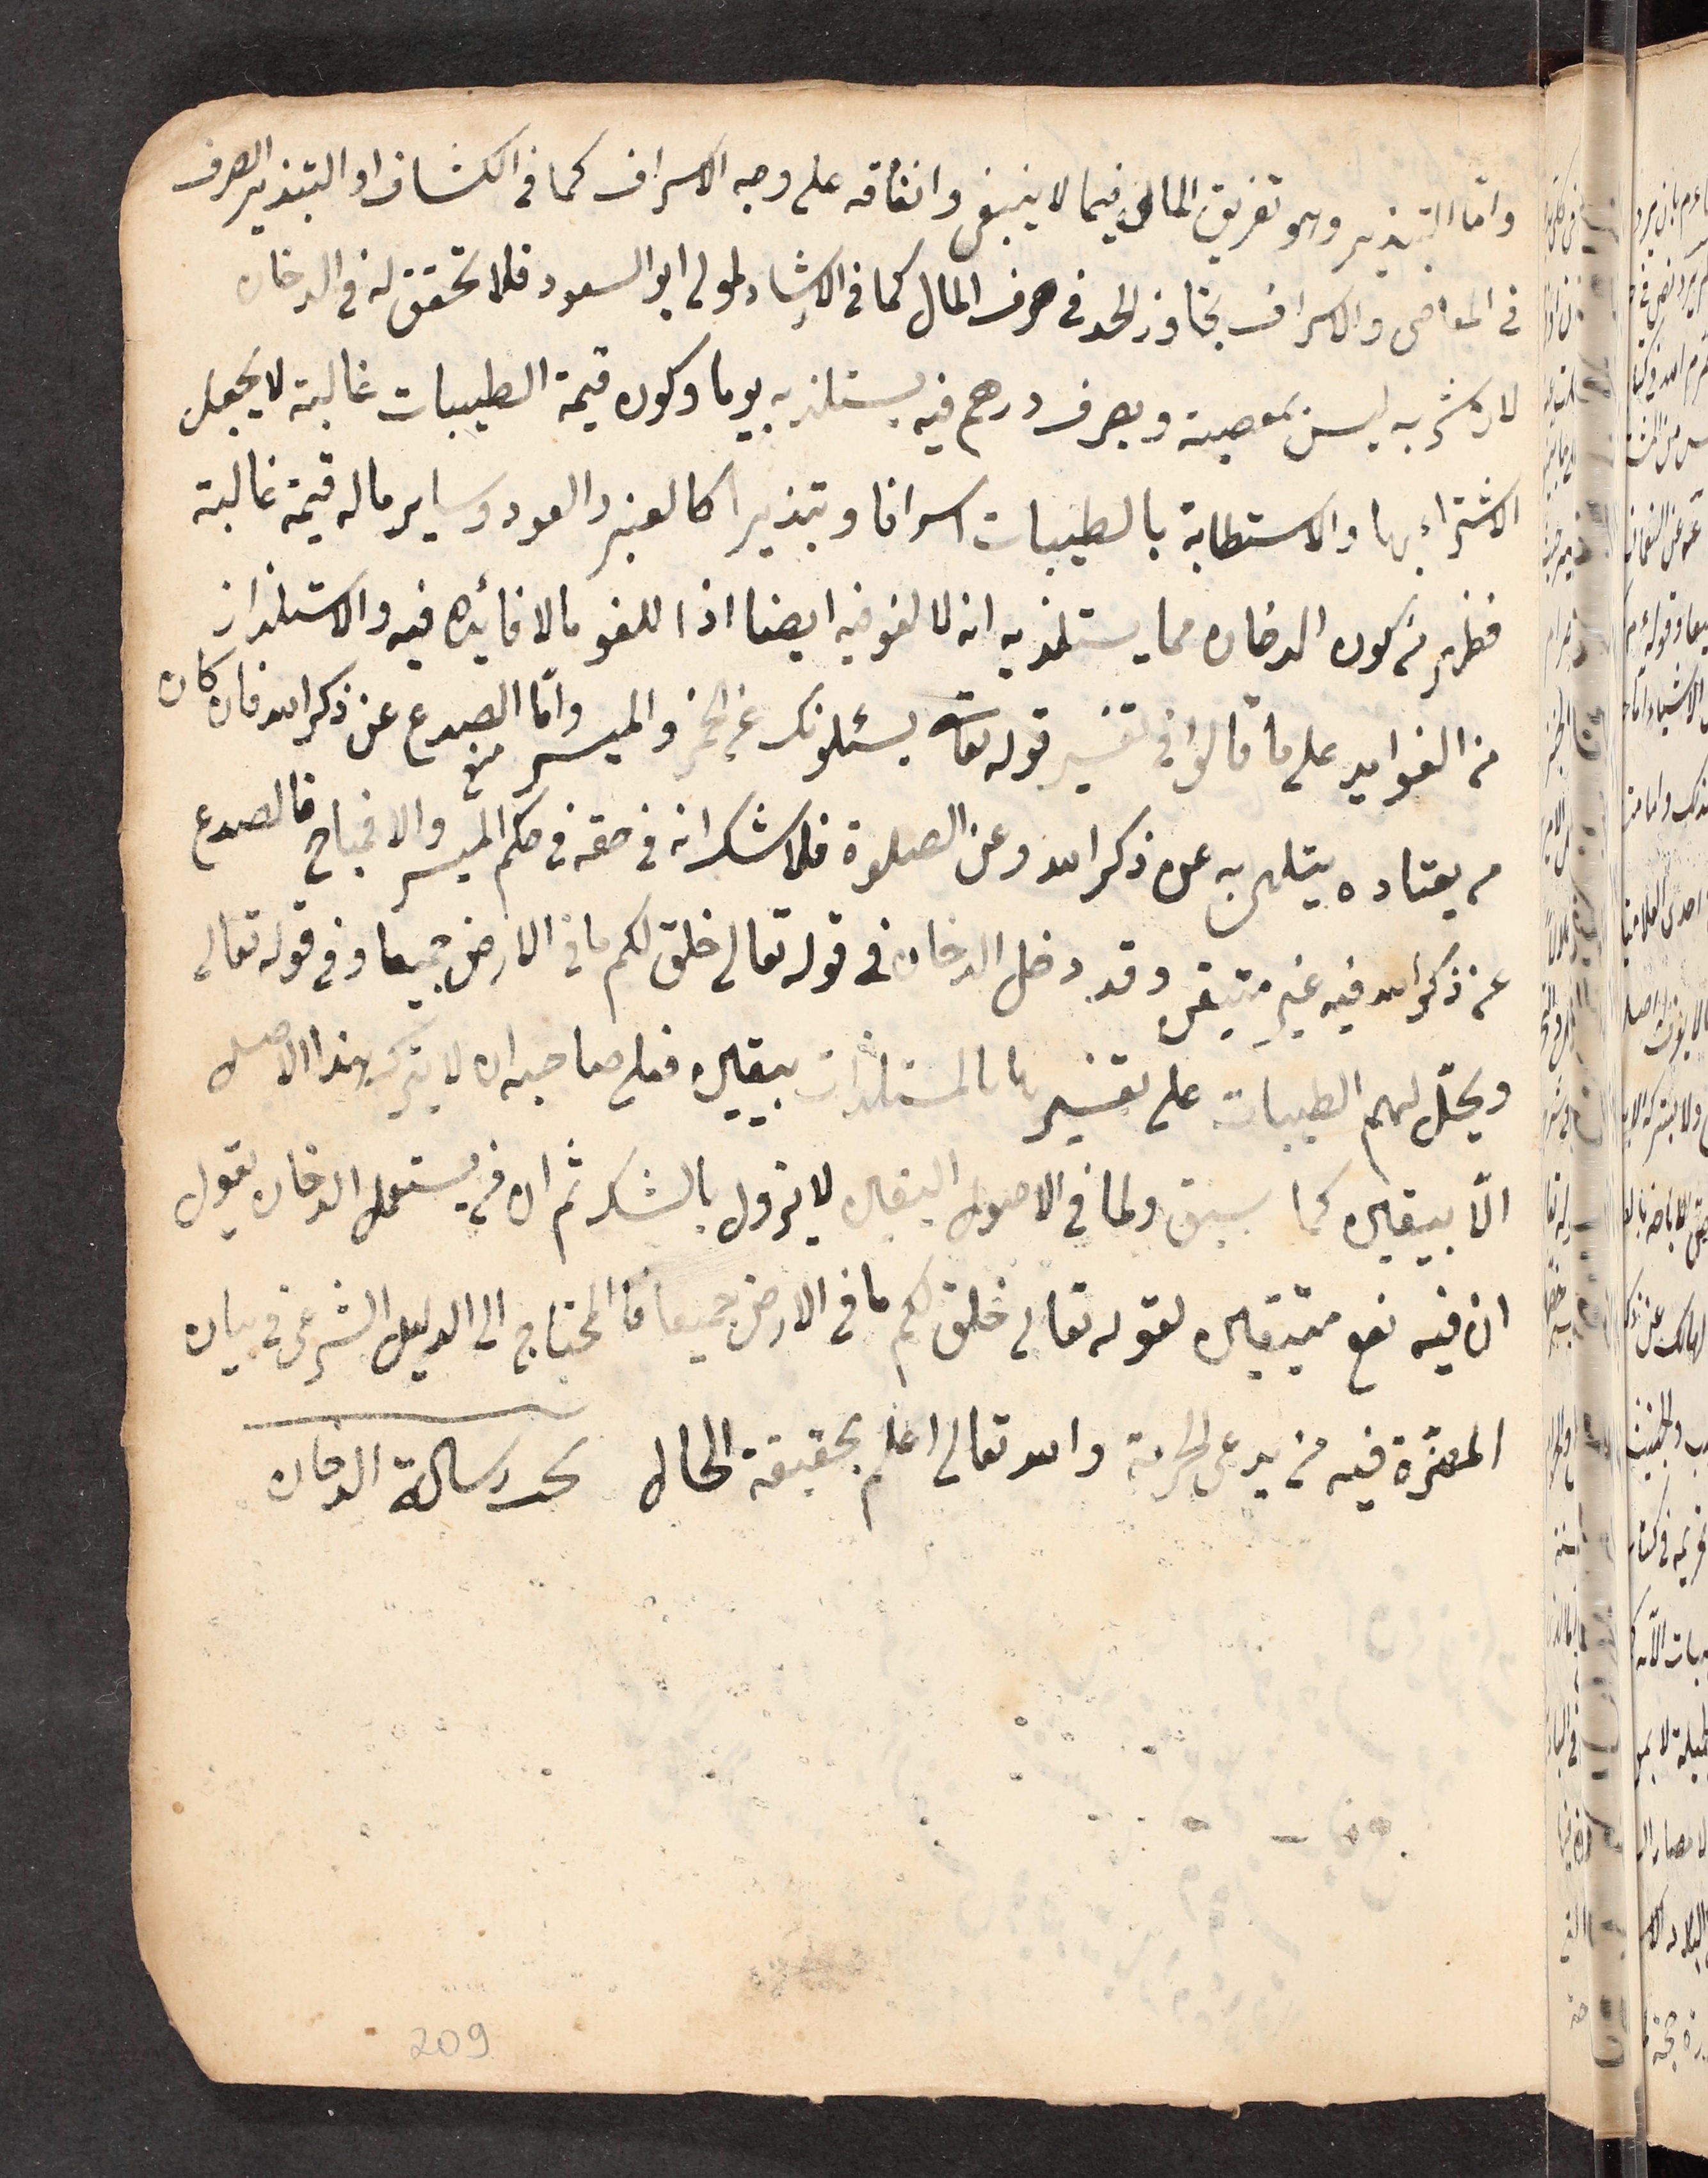 وامّا التبذير وهو تفريق المال فيما لا ينبغى وانفاقه على وجه الاسراف كما فى الكشاف او التبذير الصرف
فى المعاصى والاسراف تجاوز الحد فى صرف المال كما فى الارشاد لمولى ابو السعود فلا تحقق له فى الدخان
لان شربه ليس بمعصية وبصرف درهم فيه يستلذ به يوما وكون قيمة الطيبات غالية لا يجعل
الاشتراء بها والاستطابة بالطيبات اسرافا وتبذيرا كالعنبر والعود وساير ماله قيمة غالية
فظهر من كون الدخان مما يستلذ به انه لا لغو فيه ايضا اذ اللغو ما لا فائدة فيه والاستلذاذ
من الفوايد على ما قالوا فى تفسير قوله تعالى يسئلونك عن الخمر والميسر وامّا الصدع عن ذكر الله فان كان
من يعتاده يتلهى به عن ذكر الله وعن الصلوة فلا شك انه فى حقه فى حكم الميسر والا فمباح فالصدع
عن ذكر الله فيه غير متيقن وقد دخل الدخان فى قوله تعالى خلق لكم ما فى الارض جميعا وفى قوله تعالى
ويحلّ لهم الطيبات على تفسيرها بالمستلذات بيقين فعلى صاحبه ان لا يترك هذا الاصل
الّا بيقين كما سبق ولما فى الاصول اليقين لا يزول بالشك ثم ان من يستعمل الدخان يقول
ان فيه نفع متيقن لقوله تعالى خلق لكم ما فى الارض جميعا فالمحتاج الى الدليل الشرعى فى بيان
المضرّة فيه من يدعى الحرمة والله تعالى اعلم بحقيقة الحال رسالة الدخان
209